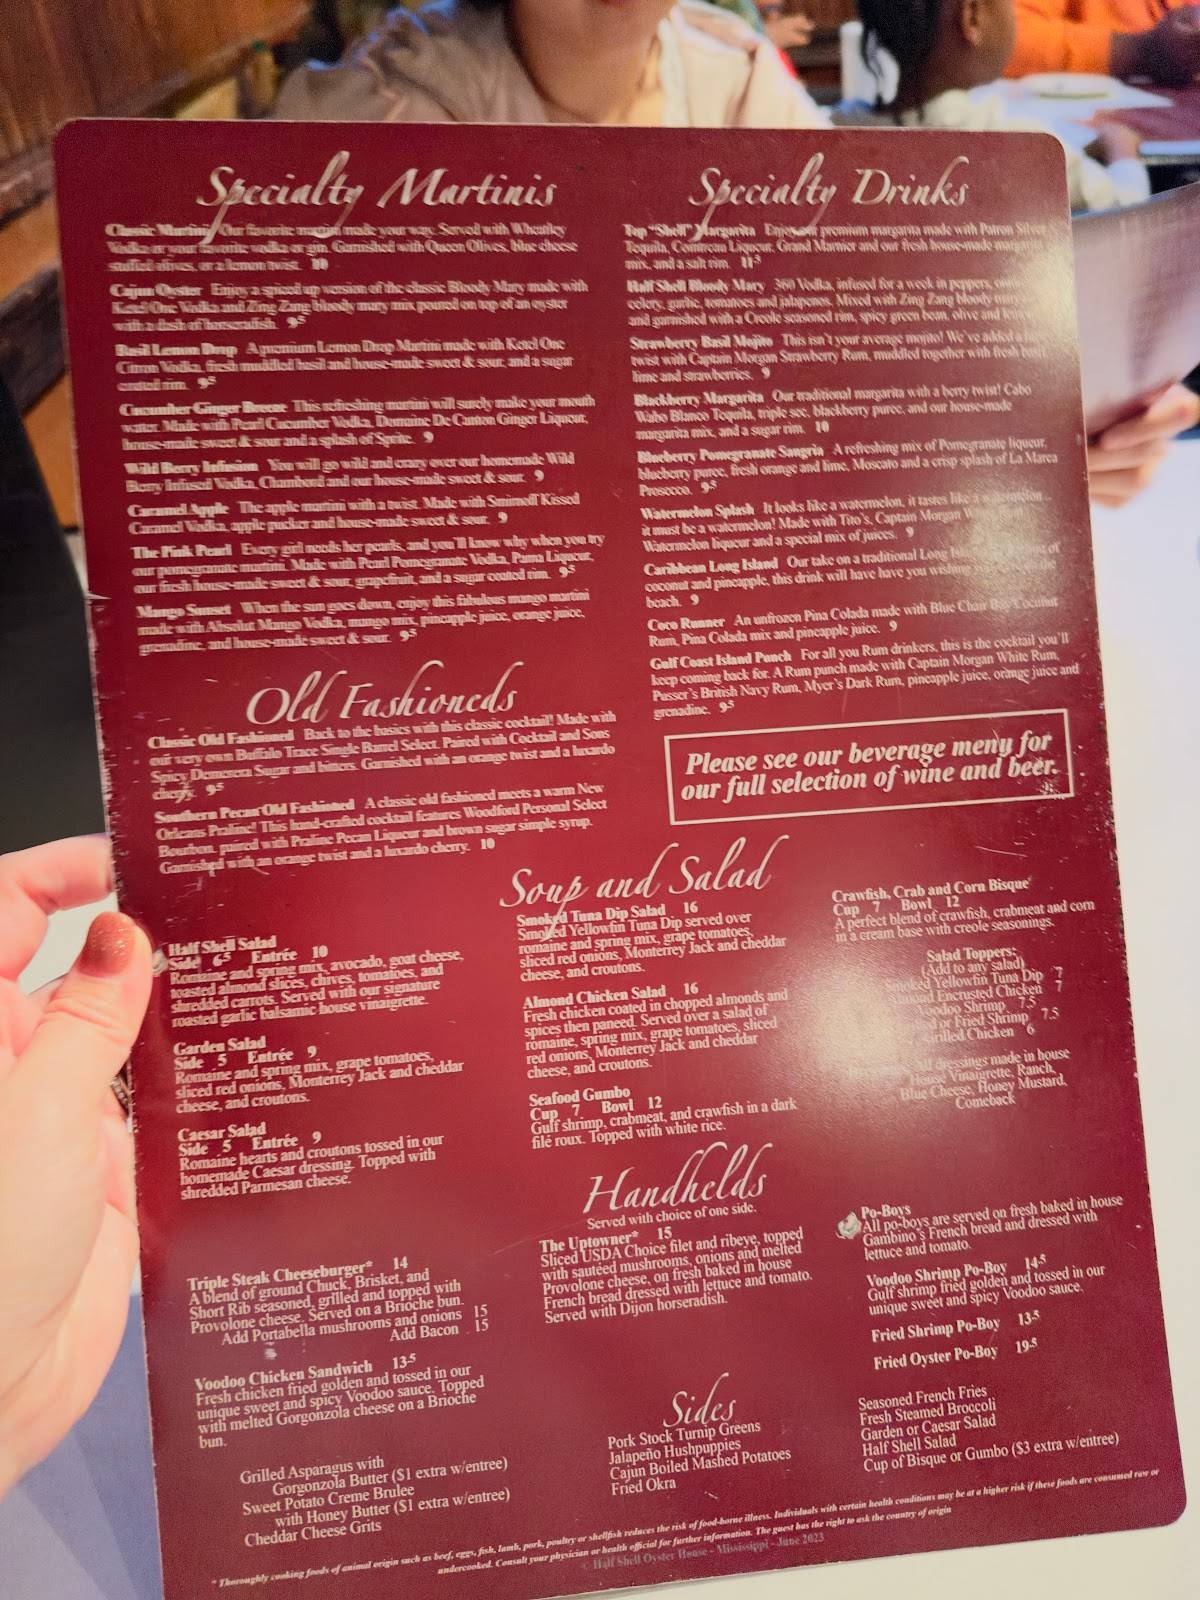 Specialty Martinis
Classic Martini Our favorite martini made your way. Served with Wheatley
Vodka or your favorite vodka or gin. Garnished with Queen Olives, blue cheese
stuffed olives, or a lemon twist. 10
Cajun Oyster Enjoy a spiced up version of the classic Bloody Mary made with
Ketel One Vodka and Zing Zang bloody mary mix poured on top of an oyster
with a dash of horseradish. 9.5
Basil Lemon Drop A premium Lemon Drop Martini made with Ketel One
Citron Vodka, fresh muddled basil and house-made sweet & sour, and a sugar
coated rim. 9.5
Cucumber Ginger Breeze This refreshing martini will surely make your mouth
water. Made with Pearl Cucumber Vodka, Domaine De Canton Ginger Liqueur,
house-made sweet & sour and a splash of Sprite. 9
Wild Berry Infusion You will go wild and crazy over our homemade Wild
Berry Infused Vodka, Chambord and our house-made sweet & sour. 9
Caramel Apple The apple martini with a twist. Made with Smirnoff Kissed
Caramel Vodka, apple pucker and house-made sweet & sour. 9
The Pink Pearl Every girl needs her pearls, and you'll know why when you try
our pomegranate martini. Made with Pearl Pomegranate Vodka, Pama Liqueur,
our fresh house-made sweet & sour, grapefruit, and a sugar coated rim. 9.5
Mango Sunset When the sun goes down, enjoy this fabulous mango martini
made with Absolut Mango Vodka, mango mix, pineapple juice, orange juice,
grenadine, and house-made sweet & sour. 9.5
Old Fashioneds
Classic Old Fashioned Back to the basics with this classic cocktail! Made with
our very own Buffalo Trace Single Barrel Select. Paired with Cocktail and Sons
Spicy Demerera Sugar and bitters. Garnished with an orange twist and a luxardo
cherry. 9.5
Southern Pecan Old Fashioned A classic old fashioned meets a warm New
Orleans Praline! This hand-crafted cocktail features Woodford Personal Select
Bourbon, paired with Praline Pecan Liqueur and brown sugar simple syrup.
Garnished with an orange twist and a luxardo cherry. 10
Specialty Drinks
Top "Shell" Margarita Enjoy our premium margarita made with Patron Silver
Tequila, Cointreau Liqueur, Grand Marnier and our fresh house-made margarita
mix, and a salt rim. 11.5
Half Shell Bloody Mary 360 Vodka, infused for a week in peppers,
celery, garlic, tomatoes and jalapenos. Mixed with Zing Zang bloody mary
and garnished with a Creole seasoned rim, spicy green bean, olive and
Strawberry Basil Mojito This isn't your average mojito! We've added a
twist with Captain Morgan Strawberry Rum, muddled together with fresh
lime and strawberries. 9
Blackberry Margarita Our traditional margarita with a berry twist! Cabo
Wabo Blanco Tequila, triple sec, blackberry puree, and our house-made
margarita mix, and a sugar rim. 10
Blueberry Pomegranate Sangria A refreshing mix of Pomegranate liqueur,
blueberry puree, fresh orange and lime, Moscato and a crisp splash of La Marca
Prosecco. 9.5
Watermelon Splash It looks like a watermelon, it tastes like a watermelon...
it must be a watermelon! Made with Tito's, Captain Morgan
Watermelon liqueur and a special mix of juices. 9
Caribbean Long Island Our take on a traditional Long of
coconut and pineapple, this drink will have have you wishing the
beach. 9
Coco Runner An unfrozen Pina Colada made with Blue Chair Bay Coconut
Rum, Pina Colada mix and pineapple juice. 9
Gulf Coast Island Punch For all you Rum drinkers, this is the cocktail you'll
keep coming back for. A Rum punch made with Captain Morgan White Rum,
Pusser's British Navy Rum, Myer's Dark Rum, pineapple juice, orange juice and
grenadine. 9.5
Please see our beverage menu for
our full selection of wine and beer.
Soup and Salad
Half Shell Salad
Side 6.5 Entrée 10
Romaine and spring mix, avocado, goat cheese,
toasted almond slices, chives, tomatoes, and
shredded carrots. Served with our signature
roasted garlic balsamic house vinaigrette.
Garden Salad
Side 5 Entrée 9
Romaine and spring mix, grape tomatoes,
sliced red onions, Monterrey Jack and cheddar
cheese, and croutons.
Caesar Salad
Side 5 Entrée 9
Romaine hearts and croutons tossed in our
homemade Caesar dressing. Topped with
shredded Parmesan cheese.
Smoked Tuna Dip Salad 16
Smoked Yellowfin Tuna Dip served over
romaine and spring mix, grape tomatoes,
sliced red onions, Monterrey Jack and cheddar
cheese, and croutons.
Almond Chicken Salad 16
Fresh chicken coated in chopped almonds and
spices then paneed. Served over a salad of
romaine, spring mix, grape tomatoes, sliced
red onions, Monterrey Jack and cheddar
cheese, and croutons.
Seafood Gumbo
Cup 7 Bowl 12
Gulf shrimp, crabmeat, and crawfish in a dark
filé roux. Topped with white rice.
Crawfish, Crab and Corn Bisque
Cup 7 Bowl 12
A perfect blend of crawfish, crabmeat and corn
in a cream base with creole seasonings.
Salad Toppers:
(Add to any salad)
Smoked Yellowfin Tuna Dip 7
Almond Encrusted Chicken 7
Voodoo Shrimp 7.5
or Fried Shrimp 7.5
Grilled Chicken 6
All dressings made in house
House Vinaigrette, Ranch,
Blue Cheese, Honey Mustard,
Comeback
Handhelds
Served with choice of one side.
Triple Steak Cheeseburger* 14
A blend of ground Chuck, Brisket, and
Short Rib seasoned, grilled and topped with
Provolone cheese. Served on a Brioche bun.
Add Portabella mushrooms and onions 15
Add Bacon 15
Voodoo Chicken Sandwich 13.5
Fresh chicken fried golden and tossed in our
unique sweet and spicy Voodoo sauce. Topped
with melted Gorgonzola cheese on a Brioche
bun.
The Uptowner* 15
Sliced USDA Choice filet and ribeye, topped
with sautéed mushrooms, onions and melted
Provolone cheese, on fresh baked in house
French bread dressed with lettuce and tomato.
Served with Dijon horseradish.
Po-Boys
All po-boys are served on fresh baked in house
Gambino's French bread and dressed with
lettuce and tomato.
Voodoo Shrimp Po-Boy 14.5
Gulf shrimp fried golden and tossed in our
unique sweet and spicy Voodoo sauce.
Fried Shrimp Po-Boy 13.5
Fried Oyster Po-Boy 19.5
Sides
Grilled Asparagus with
Gorgonzola Butter ($1 extra w/entree)
Sweet Potato Creme Brulee
with Honey Butter ($1 extra w/entree)
Cheddar Cheese Grits
Pork Stock Turnip Greens
Jalapeño Hushpuppies
Cajun Boiled Mashed Potatoes
Fried Okra
Seasoned French Fries
Fresh Steamed Broccoli
Garden or Caesar Salad
Half Shell Salad
Cup of Bisque or Gumbo ($3 extra w/entree)
* Thoroughly cooking foods of animal origin such as beef, eggs, fish, lamb, pork, poultry or shellfish reduces the risk of food-borne illness. Individuals with certain health conditions may be at a higher risk if these foods are consumed raw or
undercooked. Consult your physician or health official for further information. The guest has the right to ask the country of origin
© Half Shell Oyster House - Mississippi - June 2023